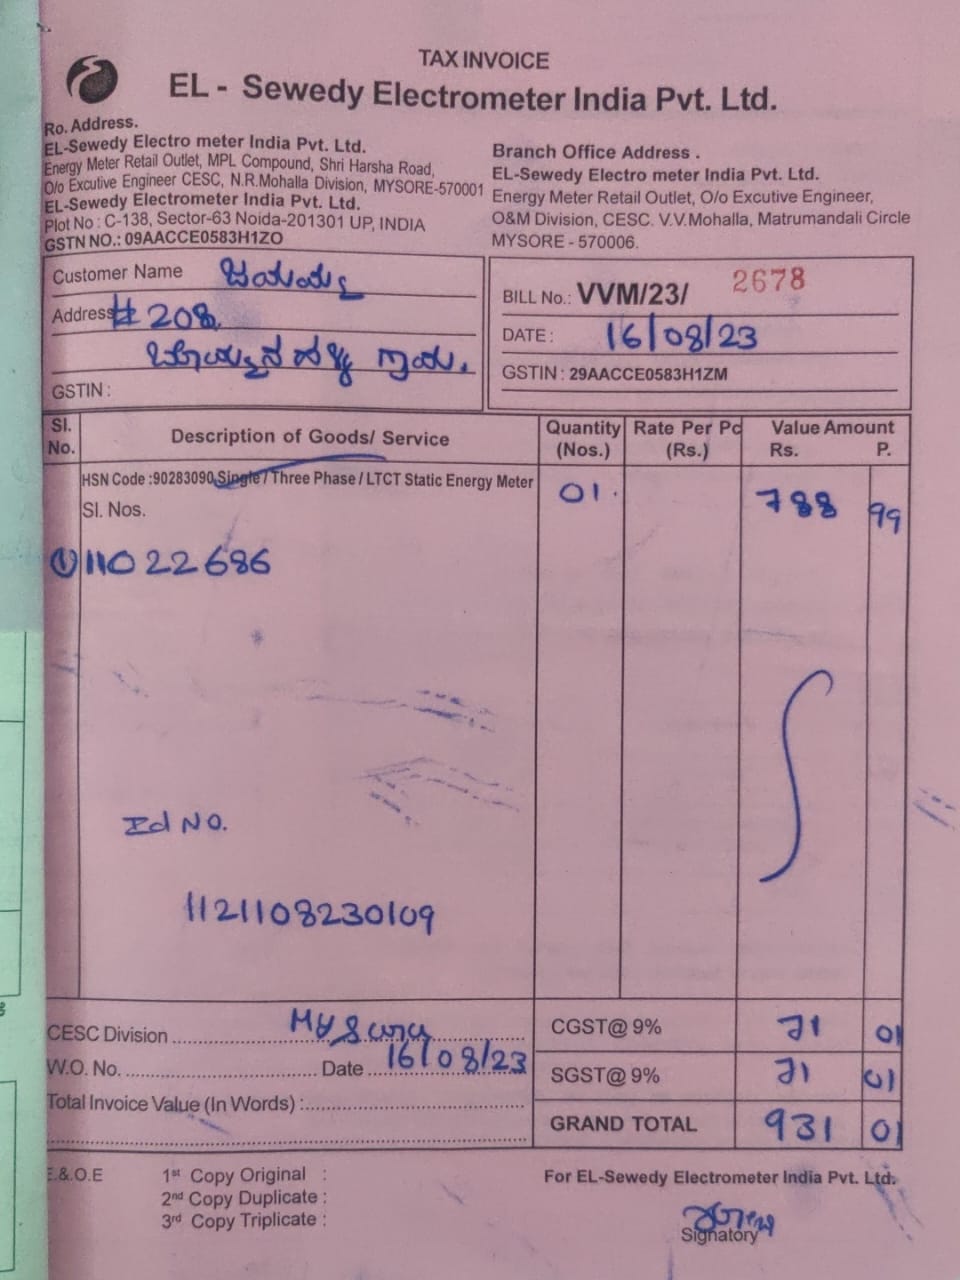 TAX INVOICE
EL - Sewedy Electrometer India Pvt. Ltd.
Ro. Address.
EL-Sewedy Electro meter India Pvt. Ltd.
Energy Meter Retail Outlet, MPL Compound, Shri Harsha Road,
O/o Excutive Engineer CESC, N.R.Mohalla Division, MYSORE-570001
EL-Sewedy Electrometer India Pvt. Ltd.
Plot No : C-138, Sector-63 Noida-201301 UP, INDIA
GSTN NO.: 09AACCE0583H1ZO
Branch Office Address .
EL-Sewedy Electro meter India Pvt. Ltd.
Energy Meter Retail Outlet, O/o Excutive Engineer,
O&M Division, CESC. V.V.Mohalla, Matrumandali Circle
MYSORE - 570006.
Customer Name
Address # 208,
GSTIN :
BILL No.: VVM/23/ 2678
DATE : 16/08/23
GSTIN : 29AACCE0583H1ZM
Sl. No. Description of Goods/ Service Quantity (Nos.) Rate Per Pc (Rs.) Value Amount Rs. P.
HSN Code :90283090 Single / Three Phase / LTCT Static Energy Meter 01. 788 99
Sl. Nos.
① 11022686
Id NO.
1121108230109
CESC Division Mysuru
W.O. No. Date 16/08/23
Total Invoice Value (In Words) :
CGST@ 9% 71 01
SGST@ 9% 71 01
GRAND TOTAL 931 01
E.&.O.E
1st Copy Original :
2nd Copy Duplicate :
3rd Copy Triplicate :
For EL-Sewedy Electrometer India Pvt. Ltd.
Signatory